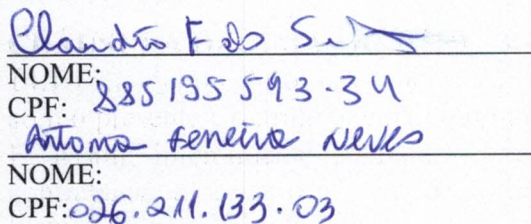 Claudio F do Silva
NOME:
CPF: 885195593-34
Antonia Ferreira Neves
NOME:
CPF: 026.211.133.03